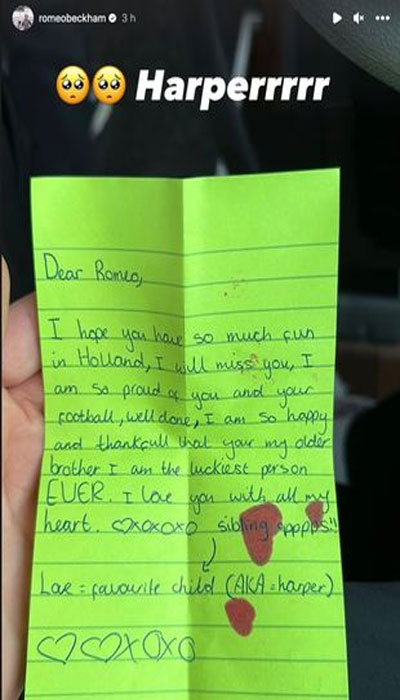 romeobeckham 3 h
🥺🥺 Harperrrrr
Dear Romeo,
I hope you have so much fun
in Holland, I will miss you, I
am so proud of you and your
football, well done, I am so happy
and thankfull that your my older
brother I am the luckiest person
EVER. I love you with all my
heart. ♡xoxoxo sibling apppps!!
Love = favourite child (AKA = harper)
♡♡XOXO